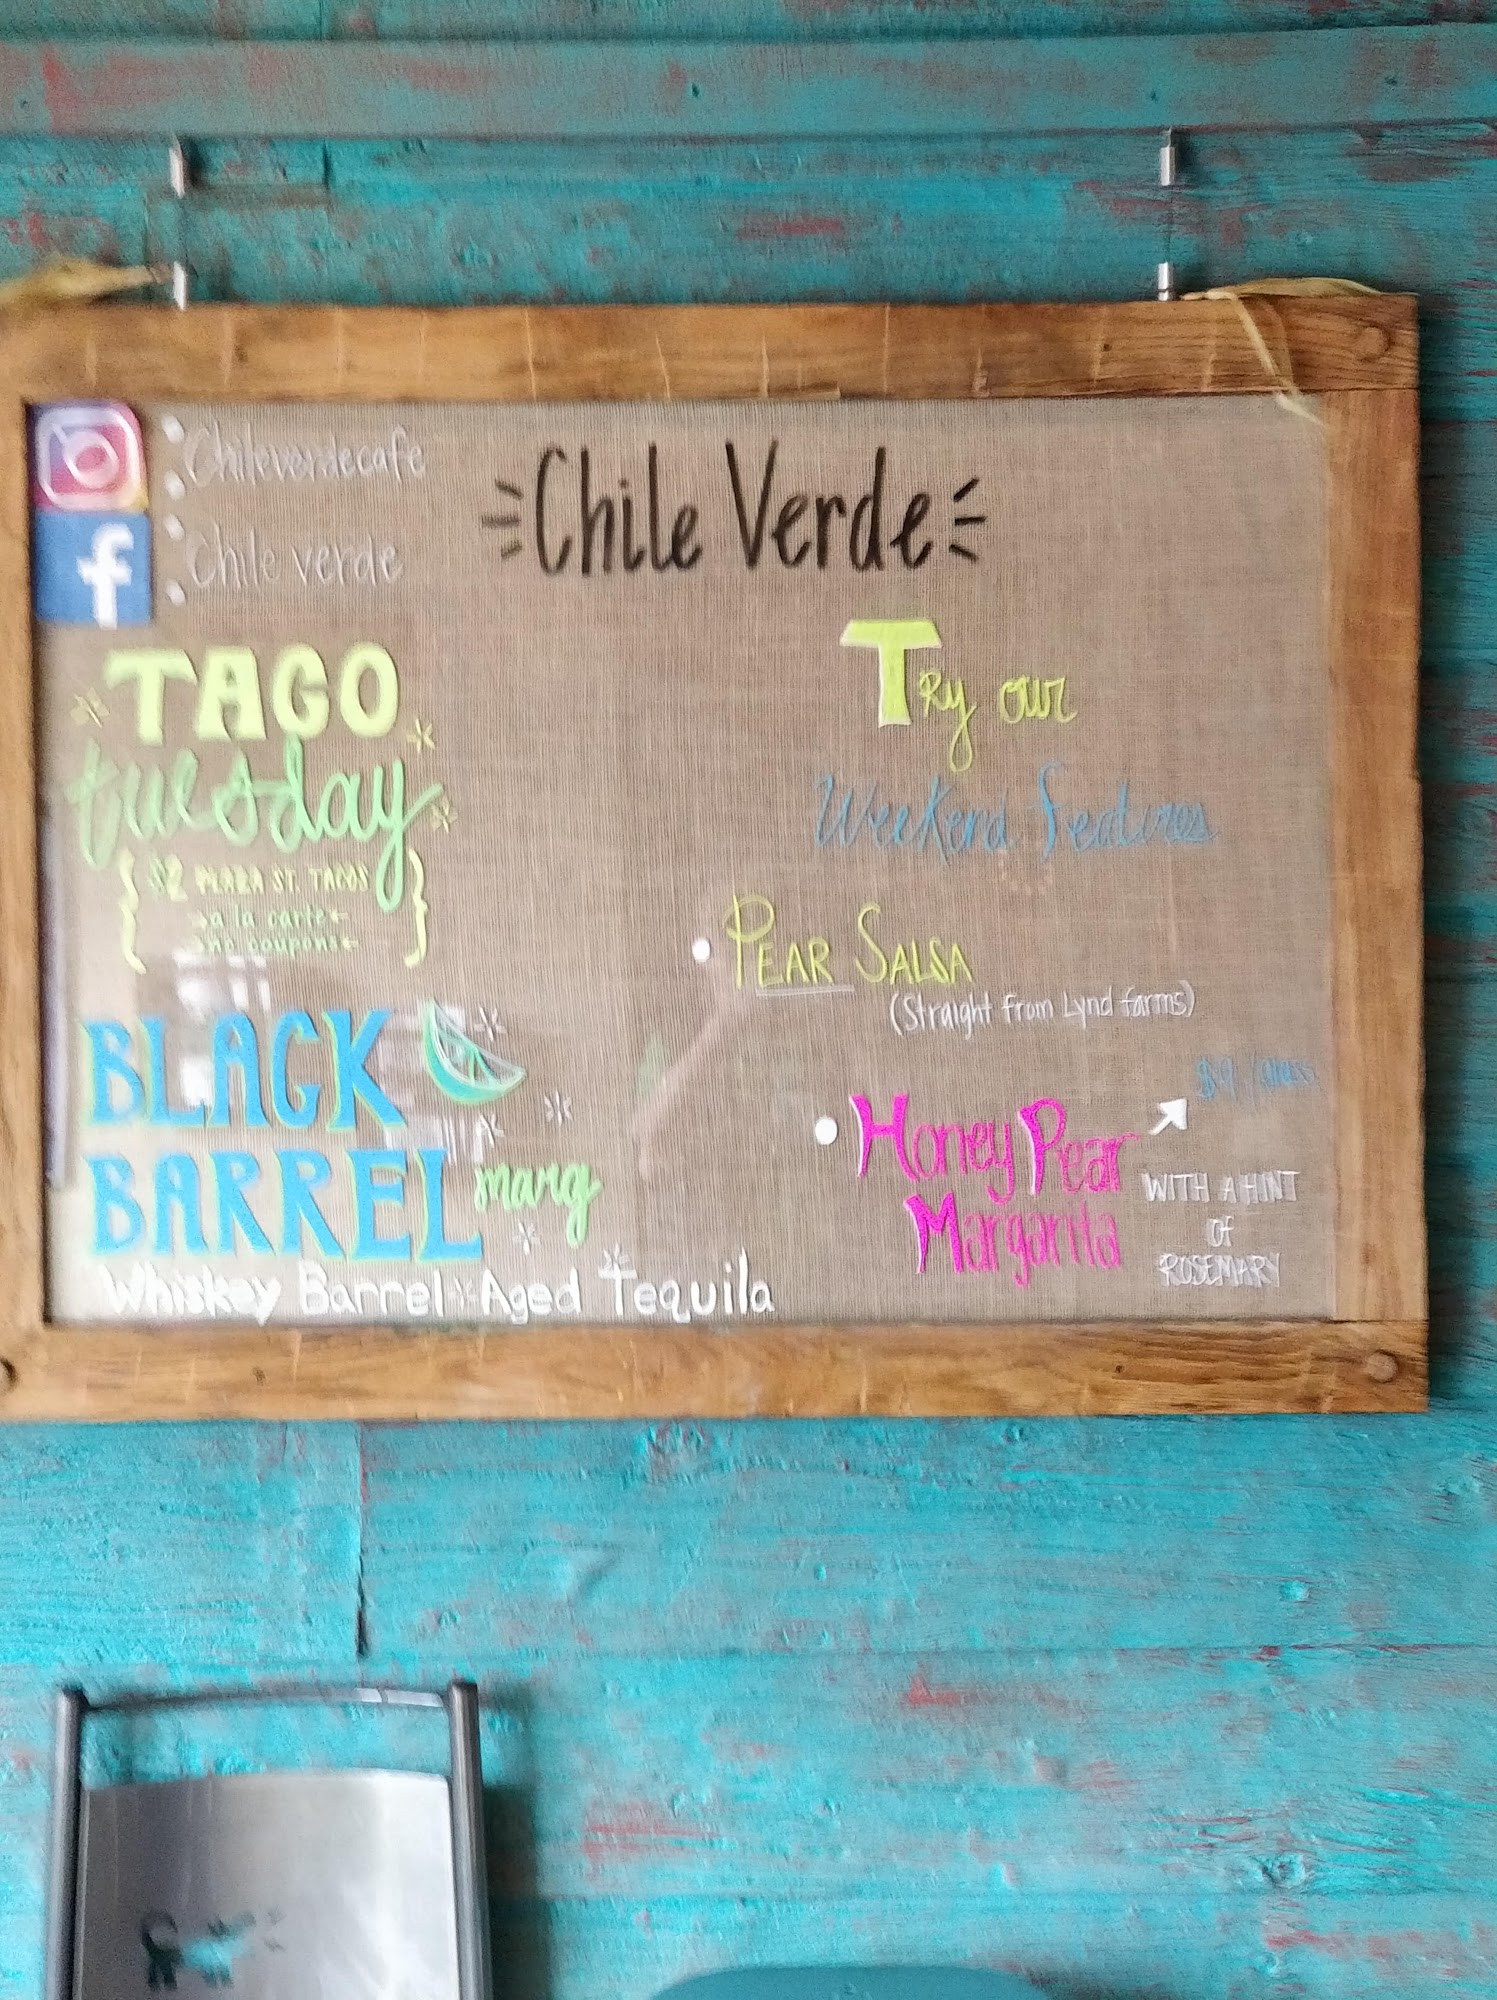 Chileverdecafe
f
Chile verde
Chile Verde
TACO
tuesday
{ $2 PLAZA ST. TACOS }
a la carte
no coupons
BLACK
BARREL marg
Whiskey Barrel Aged Tequila
Try our
Weekend features
• PEAR SALSA
(Straight from Lynd farms)
$9 /glass
• Honey Pear
Margarita
WITH A HINT
OF
ROSEMARY